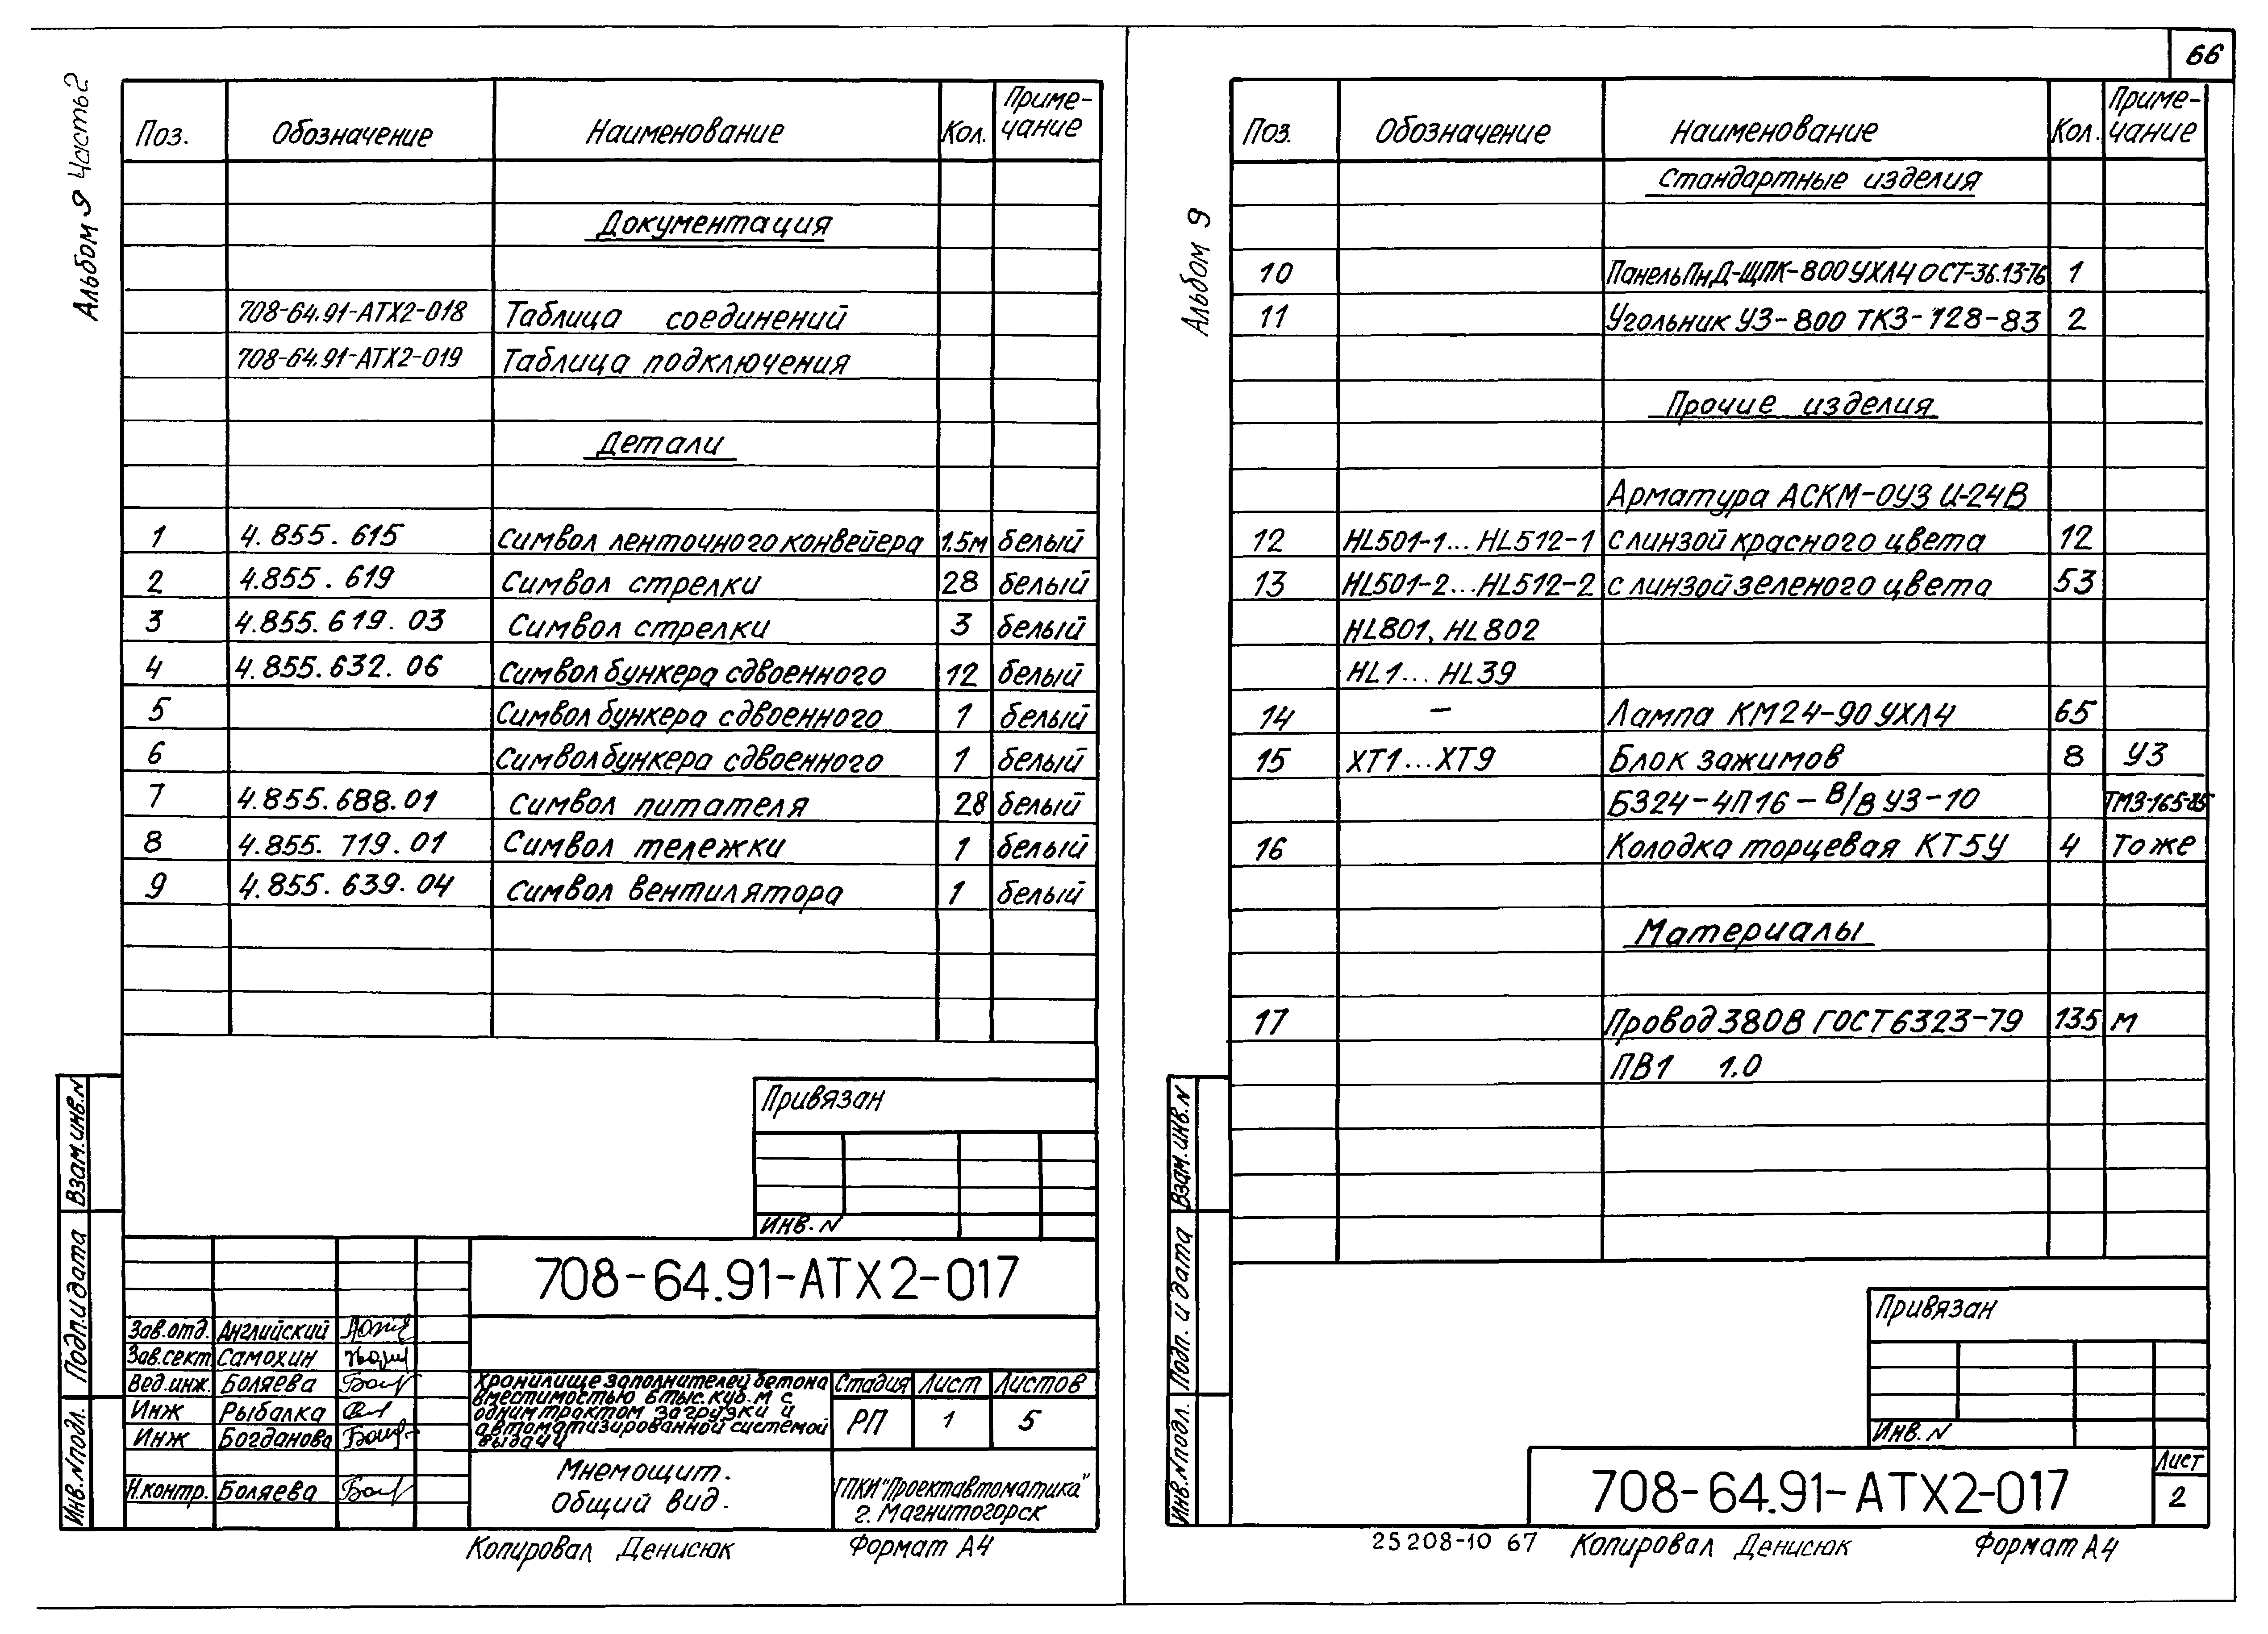 66
Альбом 9 Часть 2
Поз. Обозначение Наименование Кол. Приме-
чание
Документация
708-64.91-АТХ2-018 Таблица соединений
708-64.91-АТХ2-019 Таблица подключения
Детали
1 4.855.615 Символ ленточного конвейера 1.5м белый
2 4.855.619 Символ стрелки 28 белый
3 4.855.619.03 Символ стрелки 3 белый
4 4.855.632.06 Символ бункера сдвоенного 12 белый
5 Символ бункера сдвоенного 1 белый
6 Символ бункера сдвоенного 1 белый
7 4.855.688.01 Символ питателя 28 белый
8 4.855.719.01 Символ тележки 1 белый
9 4.855.639.04 Символ вентилятора 1 белый
Привязан
Инв. N
Взам.инв.N
Подп.и дата
Инв.N подл.
708-64.91-АТХ2-017
Зав.отд. Английский
Зав.сект Самохин
Вед.инж. Боляева
Инж Рыбалка
Инж Богданова
Н.контр. Боляева
Хранилище заполнителей бетона
вместимостью 6 тыс. куб. м с
одним трактом загрузки и
автоматизированной системой
выдачи
Стадия Лист Листов
РП 1 5
Мнемощит.
Общий вид.
ГПКИ "Проектавтоматика"
г. Магнитогорск
Копировал Денисюк Формат А4
Альбом 9
Поз. Обозначение Наименование Кол. Приме-
чание
Стандартные изделия
10 Панель ПнД-ЩПК-800 УХЛ4 ОСТ-36.13-76 1
11 Угольник УЗ-800 ТКЗ-128-83 2
Прочие изделия
Арматура АСКМ-0У3 U-24В
12 HL501-1...HL512-1 с линзой красного цвета 12
13 HL501-2...HL512-2 с линзой зеленого цвета 53
HL801, HL802
HL1...HL39
14 - Лампа КМ24-90 УХЛ4 65
15 ХТ1...ХТ9 Блок зажимов 8 У3
БЗ24-4П16-В/В У3-10 ТМ3-165-85
16 Колодка торцевая КТ5У 4 То же
Материалы
17 Провод 380В ГОСТ 6323-79 135 м
ПВ1 1.0
Привязан
Инв. N
Взам. инв. N
Подп. и дата
Инв.N подл.
708-64.91-АТХ2-017
Лист
2
25208-10 67 Копировал Денисюк Формат А4